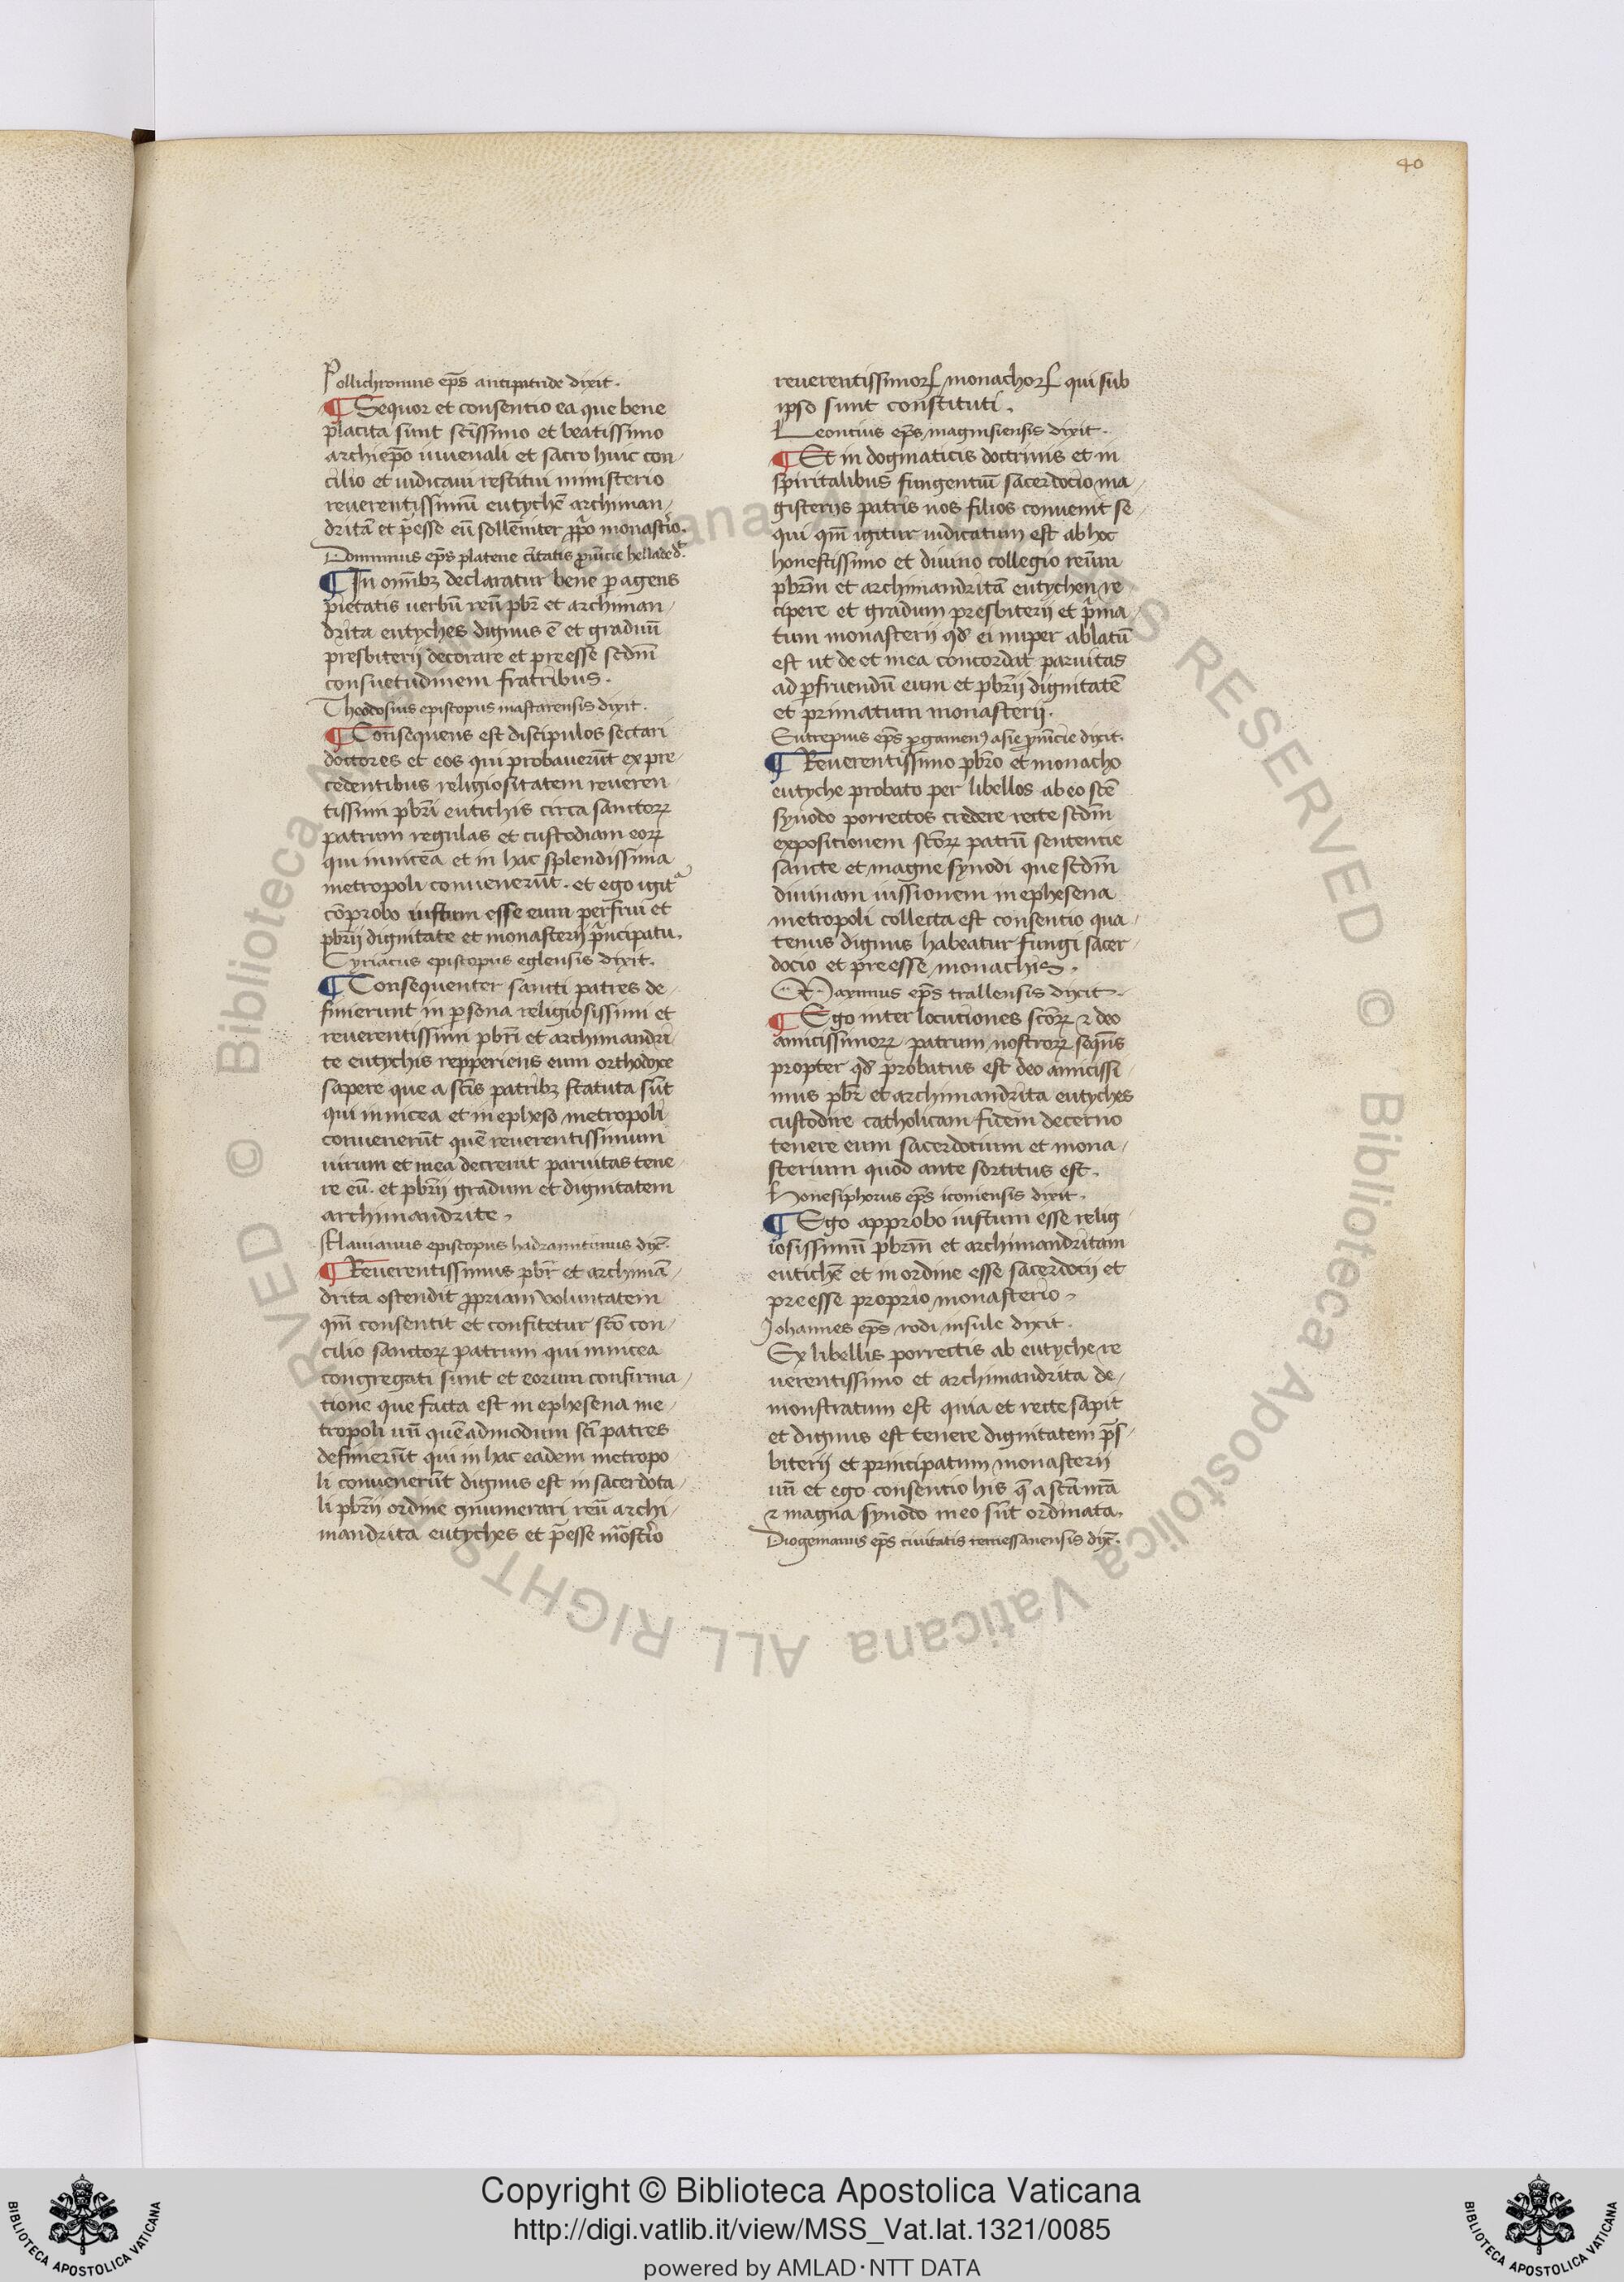 40
Pollichronius ep̄s antipatride dixit.
¶ Sequor et consentio ea que bene
placita sunt sc̄issimo et beatissimo
archiep̄o iuuenali et sacro huic con-
cilio et iudicaui restitui ministerio
reuerentissimū eutychē archiman-
dritā et p̄esse eū sollēniter p̱p̱o monast̄io.
Domninus ep̄s platene ciuitatis ꝓuīcie hellade d̄.
¶ In om̄ibꝫ declaratur bene per agens
pietatis uerbū reū pbr̄ et archiman-
drita eutyches dignus ē et graduū
presbiterij decorare et preesse scdm̄
consuetudinem fratribus.
Theodosius episcopus mastarensis dixit.
¶ Consequens est discipulos sectari
doctores et eos qui probauerūt ex pre-
cedentibus religiositatem reueren-
tissimi pbr̄i eutichis circa sanctorꝝ
patrum regulas et custodiam eorꝝ
qui in nicea et in hac splendissima
metropoli conuenerūt. et ego igit᷑
cōprobo iustum esse eum perfrui et
pbr̄ij dignitate et monasterij pͥncipatu.
Cyriacus episcopus eglensis dixit.
¶ Consequenter sancti patres de-
finierunt in ꝑsona religiosissimi et
reuerentissimi pbr̄i et archimandri-
te eutychis repperiens eum orthodoxe
sapere que a sc̄is patribꝫ statuta sūt
qui in nicea et in epheso metropoli
conuenerūt quē reuerentissimum
uirum et mea decreuit paruitas tene-
re eū. et pbr̄ij gradum et dignitatem
archimandrite.
Flauianus episcopus hadramitinus dix̄.
¶ Reuerentissimus pbr̄ et archimā-
drita ostendit ꝓpriam voluntatem
qm̄ consentit et confitetur sc̄o con-
cilio sanctorꝝ patrum qui in nicea
congregati sunt et eorum confirma-
tione que facta est in ephesena me-
tropoli un̄ quēadmodum sc̄i patres
definierūt qui in hac eadem metropo
li conuenerūt dignus est in sacerdota-
li pbr̄ij ordine ꝯnumerari reū archi-
mandrita eutyches et p̄esse mōast̄io
reuerentissimorꝝ monachorꝝ qui sub
ipso sunt constituti.
Leoncius ep̄s magnisiensis dixit.
¶ Et in dogmaticis doctrinis et in
spiritalibus fungentiū sacerdocio ma-
gisterijs patris nos filios conuenit se-
qui qm̄ igitur iudicatum est ab hoc
honestissimo et diuino collegio reūm
pbr̄m et archimandritā eutychen re
cipere et gradum presbiterij et pͥma-
tum monasterij qd̄ ei nuper ablatū
est ut de et mea concordat paruitas
ad ꝑfruendū eum et pbr̄ij dignitatē
et primatum monasterij.
Eutropius ep̄s ꝑgamenꝰ asie ꝓuīcie dixit.
¶ Reuerentissimo pbr̄o et monacho
eutyche probato per libellos ab eo sc̄e
synodo porrectos credere recte scdm̄
expositionem sc̄orꝝ patrū sentencie
sancte et magne synodi que scdm̄
diuinam iussionem in ephesena
metropoli collecta est consentio qua-
tenus dignus habeatur fungi sacer-
docio et preesse monachis.
Maximus ep̄s trallensis dixit.
¶ Ego inter locutiones sc̄orꝝ ⁊ deo
amicissimorꝝ patrum nostrorꝝ sequēs
propter qd̄ probatus est deo amicissi-
mus pbr̄ et archimandrita eutyches
custodire catholicam fidem decerno
tenere eum sacerdotium et mona-
sterium quod ante sortitus est.
Honesiphorus ep̄s iconiensis dixit.
¶ Ego approbo iustum esse relig
iosissimū pbr̄m et archimandritam
eutichē et in ordine esse sacerdocij et
preesse proprio monasterio.
Johannes ep̄s rodi insule dixit.
Ex libellis porrectis ab eutyche re
uerentissimo et archimandrita de-
monstratum est quia et recte sapit
et dignus est tenere dignitatem p̄s-
biterij et principatum monasterij
un̄ et ego consentio his q̄ a sc̄a n̄rā
⁊ magna synodo in eo sūt ordinata.
Diogenianus ep̄s ciuitatis remessanensis dix̄.
Copyright © Biblioteca Apostolica Vaticana
http://digi.vatlib.it/view/MSS_Vat.lat.1321/0085
powered by AMLAD·NTT DATA